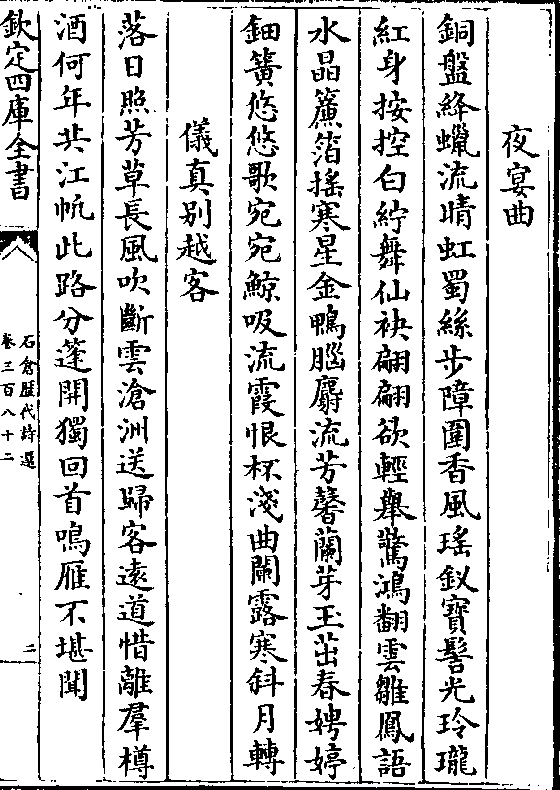 夜宴曲
銅盤絳蠟流晴虹蜀絲步障圍香風瑤釵寶髻光玲瓏
紅身按控白紵舞仙袂翩翩欲輕舉驚鴻翻雲雛鳳語
水晶簾箔搖寒星金鴨腦麝流芳馨蘭芽玉茁春娉婷
鈿簧悠悠歌宛宛鯨吸流霞恨杯淺曲闌露寒斜月轉
儀真别越客
落日照芳草長風吹斷雲滄洲送歸客遠道惜離羣樽
酒何年共江帆此路分蓬開獨回首鳴雁不堪聞
欽定四庫全書
石倉歷代詩選
卷三百八十二
二